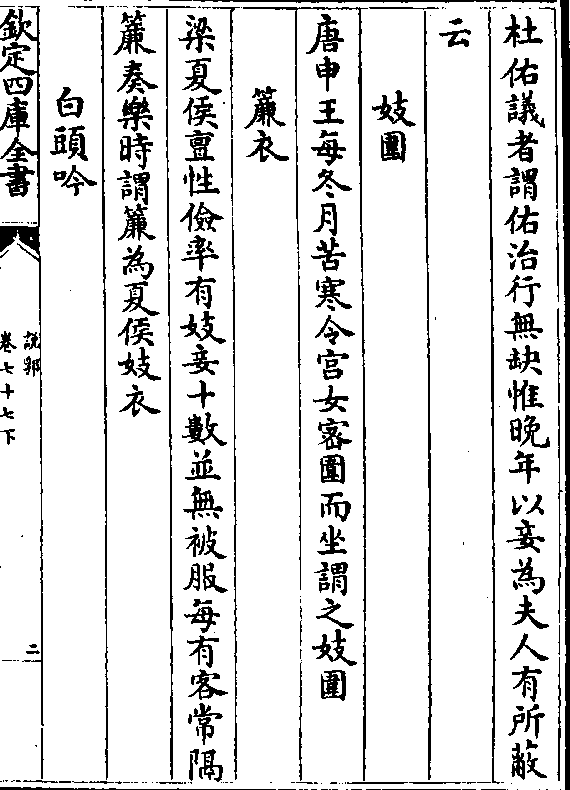 杜佑議者謂佑治行無缺惟晚年以妾為夫人有所蔽
云
妓圍
唐申王每冬月苦寒令宫女宻圍而坐謂之妓圍
簾衣
梁夏侯亶性儉率有妓妾十數並無被服每有客常隔
簾奏樂時謂簾為夏侯妓衣
白頭吟
欽定四庫全書
說郛
卷七十七下
二